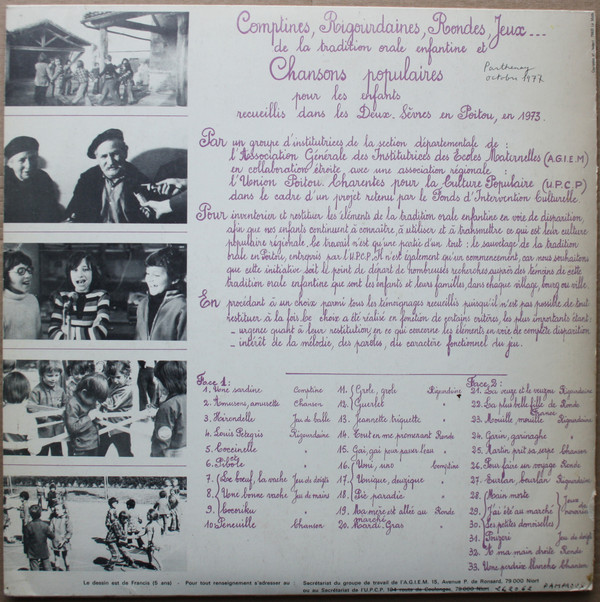 Comptines, Rigourdaines, Rondes, Jeux...
de la tradition orale enfantine et
Chansons populaires
Parthenay
octobre 1977
pour les enfants
recueillis dans les Deux-Sèvres en Poitou, en 1973.
Par un groupe d'institutrices de la section départementale de :
l'Association Générale des Institutrices des Ecoles Maternelles (A.G.I.E.M)
en collaboration étroite avec une association régionale :
l'Union Poitou Charentes pour la Culture Populaire (U.P.C.P)
dans le cadre d'un projet retenu par le Fonds d'Intervention Culturelle
Pour inventorier et restituer les éléments de la tradition orale enfantine en voie de disparition,
afin que nos enfants continuent à connaître, à utiliser et à transmettre ce qui est leur culture
populaire régionale. Ce travail n'est qu'une partie d'un tout : le sauvetage de la tradition
orale en Poitou, entrepris par l'U.P.C.P. Il n'est également qu'un commencement, car nous souhaitons
que cette initiative soit le point de départ de nombreuses recherches auprès des témoins de cette
tradition orale enfantine que sont les enfants et leurs familles, dans chaque village, bourg ou ville.
En procédant à un choix parmi tous les témoignages recueillis puisqu'il n'est pas possible de tout
restituer à la fois. Ce choix a été réalisé en fonction de certains critères, les plus importants étant :
- urgence quant à leur restitution, en ce qui concerne les éléments en voie de complète disparition
- intérêt de la mélodie, des paroles, du caractère fonctionnel du jeu.
Face 1 :
1. Une sardine Comptine
2. Amusoni, amusette Chanson
3. Hirondelle Jeu de balle
4. Louis Rigourdaine
5. Coccinelle "
6.
7. Le bœuf, la vache Jeu de doigts
8. Une bonne vache Jeu de mains
9. Cocoriku "
10. Peneuille Chanson
11. Grole, groli Rigourdaine
12. Guerlet "
13. Jeannette triquette "
14. Tout en me promenant Ronde
15. Gai, gai pour passer l'eau "
16. Uni, une Comptine
17. Unique, deuzique "
18. Pié, paradis "
19. Ma mère est allée au marché Ronde
20. Mardi Gras "
Face 2 :
21. Rigourdaine
22. La plus belle fille de France Ronde
23. Mouille, mouille Rigourdaine
24. Garin, garinagha "
25. Martin prit sa serpe Chanson
26. Pour faire un voyage Ronde
27. Rigourdaine
28. Main morte
29. J'ai été au marché
30. Les petites demoiselles
Jeux de nourrice
31. Jeu de doigts
32. A ma main droite Ronde
33. Une perdrix blanche Chanson
Le dessin est de Francis (5 ans) - Pour tout renseignement s'adresser au : Secrétariat du groupe de travail de l'A.G.I.E.M. 18, Avenue P. de Ronsard, 79.000 Niort
ou au Secrétariat de l'U.P.C.P. 124 route de Coulonges, 79.000 Niort